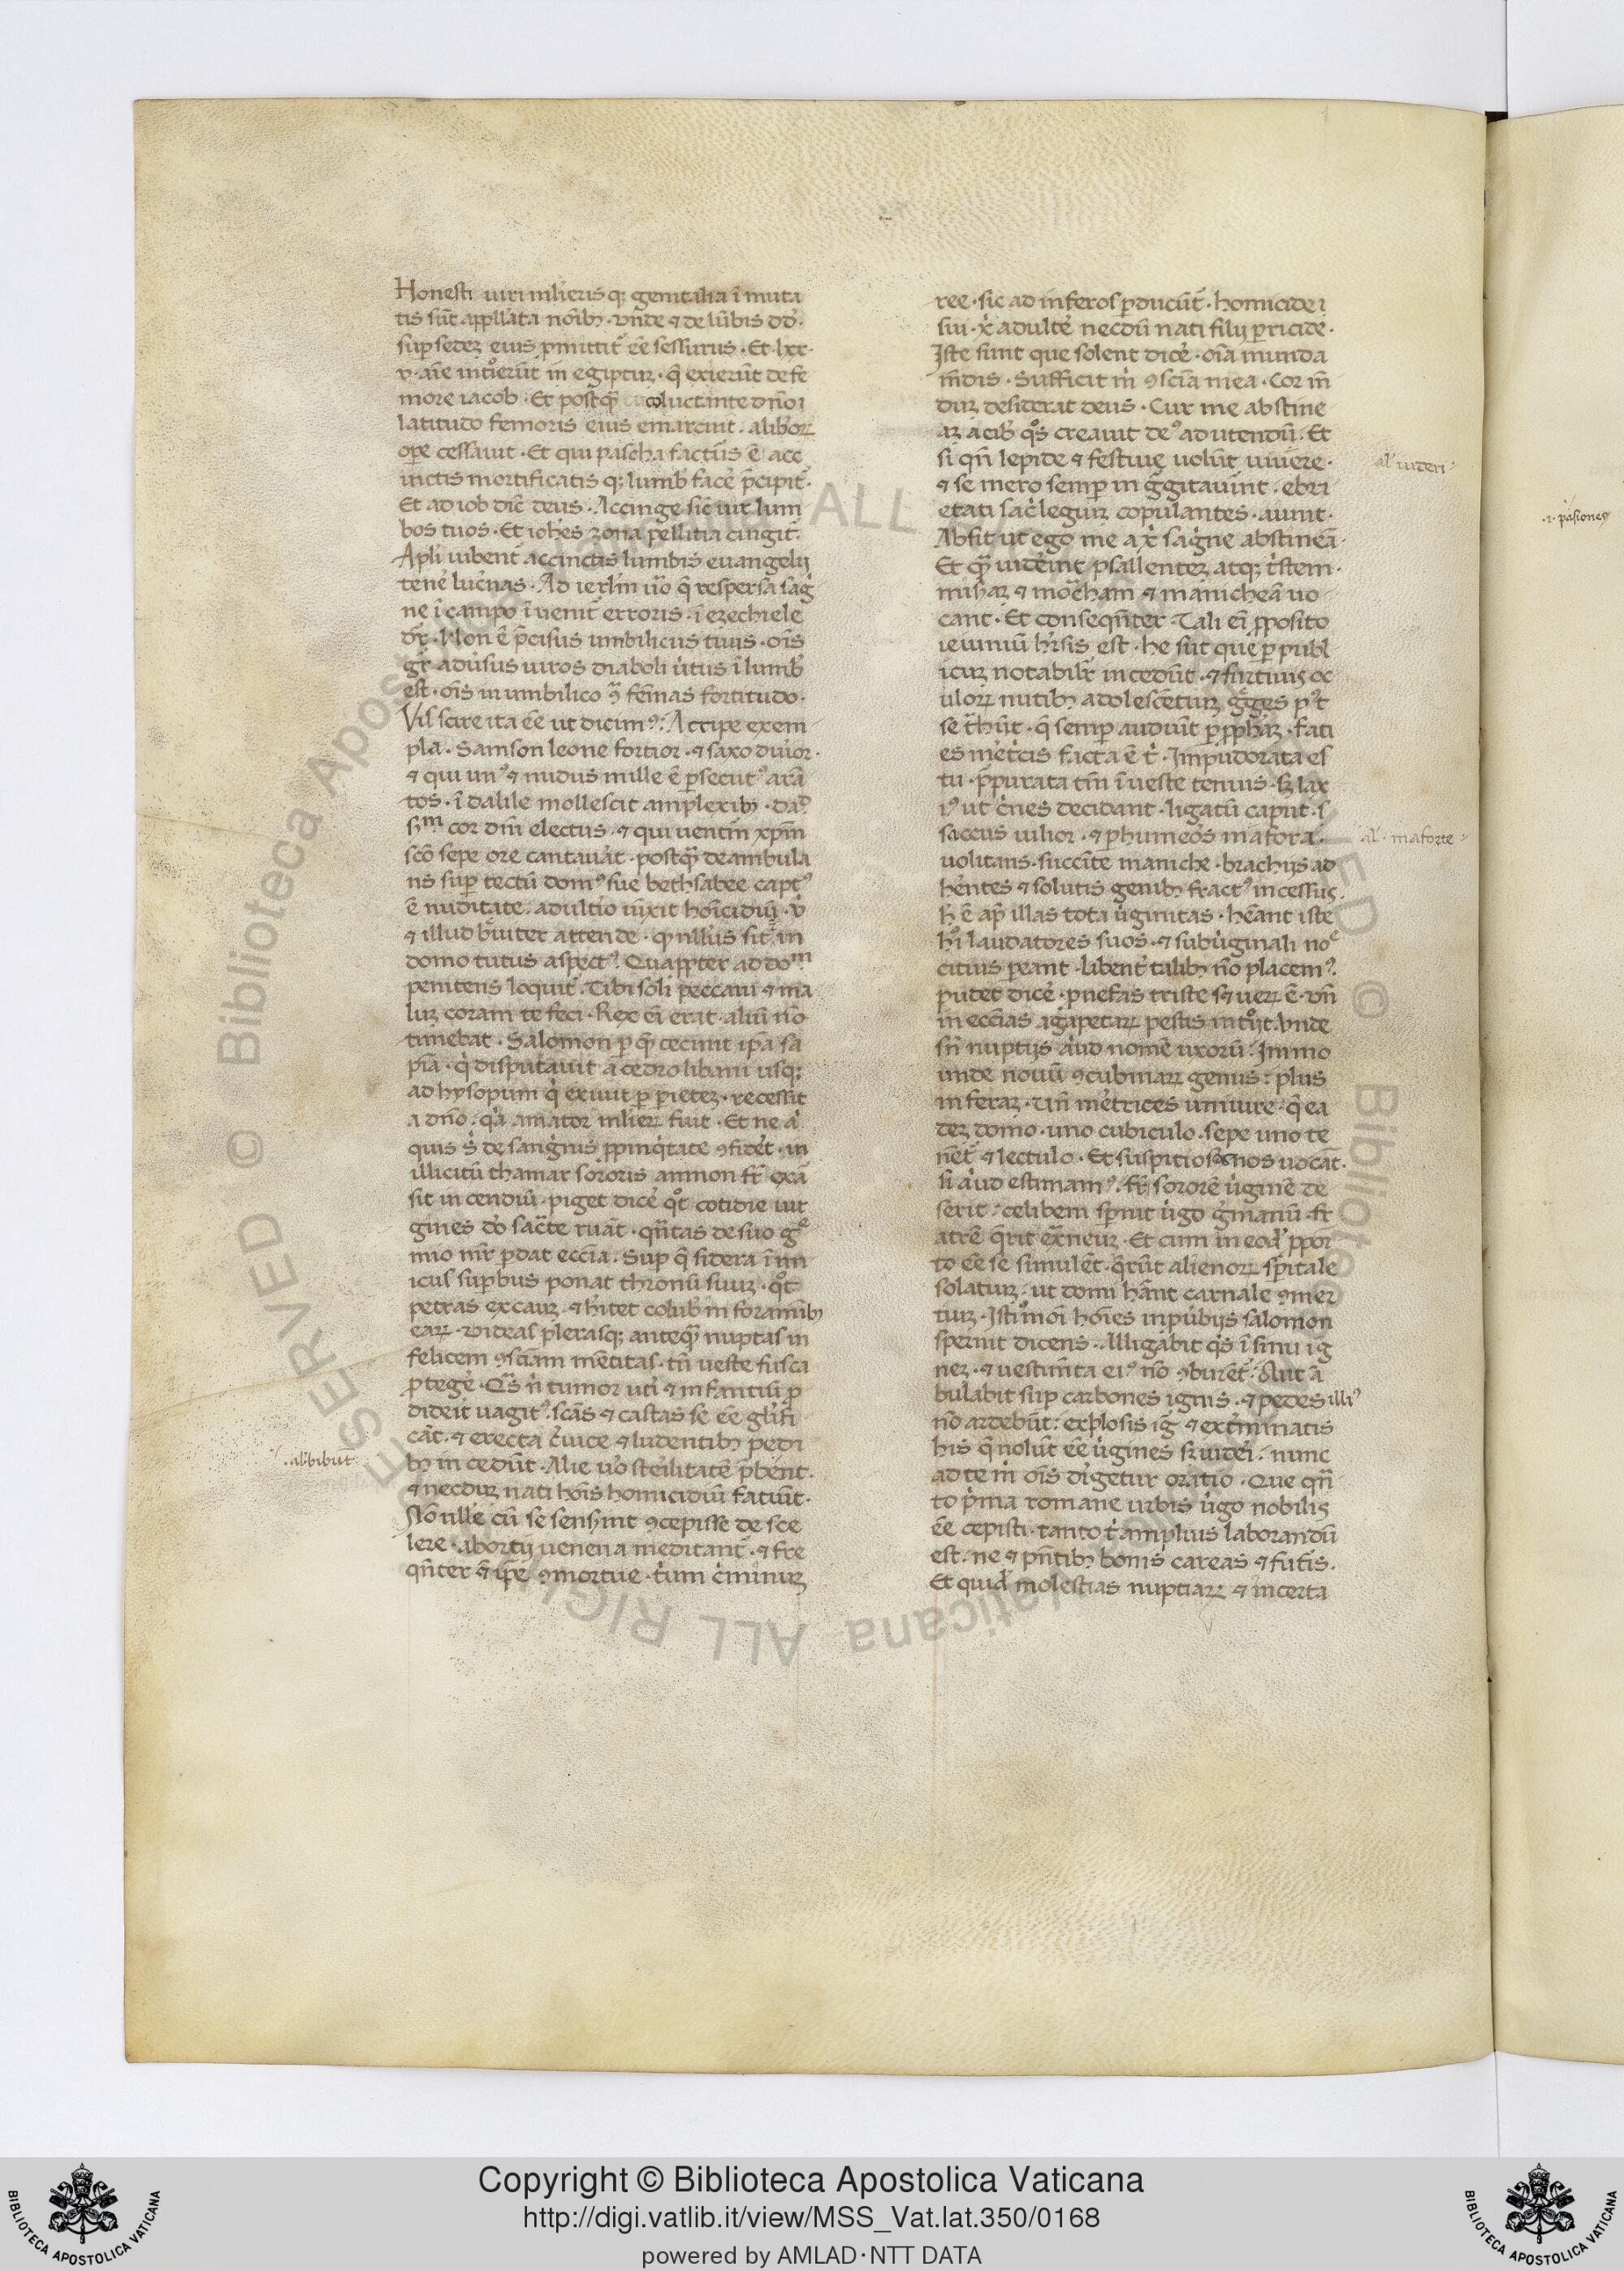 Honesti uiri mlierisq; genitalia ī muta
tis sūt appllata noīb; · vnde ⁊ de lūbis dd̄ ·
sup sedez eius p̄mittit̄ eē sessurus · Et lxx ·
v · aīe intͦierūt in egiptuz · q̄ exierūt de fe
more iacob · Et postq̄ᷓ coluctante dn̄o ·
latitudo femoris eius emarcuit · a lib̾oꝝ
ope cessauit · Et qui pascha factur̄s ē acc
inctis mortificatisq; lumb̾ face̾ p̄cipit̄ ·
Et ad iob dic̄ deus · Accinge sic̄ uir lum
bos tuos · Et ioh̄es zona pellitia cingit̄ ·
Apli̾ iubent̄ accinctis lumbis euangelij
tene̾ luc̾nas · Ad ierl̄m ūo q̄ respersa sāg
ne ī campo īuenit̄ erroris · ī ezechiele
dr̄ · Non ē p̄cisus umbilicus tuus · oīs
gͥ adu̾sus uiros diaboli u̾tus ī lumb̾
est · oīs in umbilico ꝯͣ fem̄nas fortitudo ·
Vis scire ita eē ut dicimꝰ · Accipe exem
pla · Samson leone fortior · ⁊ saxo dur̾ior ·
⁊ qui unꝰ ⁊ nudus mille ē ꝑsecutꝰ arā
tos · ī dalile mollescit amplexib; · daͩ
sͫ cor dn̄i electus · ⁊ qui uent̾m xp̄m
sc̄o sepe ore cantauat̾ · postq̄ᷓ deambula
ns sup tectū domꝰ sue bethsabee captꝰ
ē nuditate · adult̾io iūxit hoīcidiū · v̾
⁊ illud bͬuiter attende · qͩ nllu̾s sit in
domo tutus aspectꝰ · Quaꝓter ad doͫ
penitens loquit̄ · Tibi soli peccaui ⁊ ma
luz coram te feci · Rex eī erat · aliū nō
timebat · Salomon ꝑ q̄ᷓ cecinit ip̄a sa
pīa · qͥ disputauit a cedro libani usq;
ad hysopum qͥ exiuit ꝑ parietez · recessit
a dn̄o · qͣ amator mlieꝝ fuit · Et ne aͥ
quis sͥ de sangͥnis ꝓpinqͥtate ꝯfidet̾ · in
illicitū thamar sororis amnon fr̄ exā
sit incendiū · piget dice̾ qͦt cotidie uir
gines dͦ sac̄te ruāt · qͣntas de suo gͤ
mio mr̄ pͩdat ecc̄ia · Sup q̄ sidera īim
icus suꝑbus ponat thronū suuz · qͦt
petras excauz · ⁊ h̾itet colub̾ in foramīb;
eaꝝ · Videas plerasq; anteq̄ᷓ nuptas in
felicem ꝯsc̄iam mētitas · tn̄ ueste fusca
ꝓtege̾ · Qͣs n̄ tumor uti̾ ⁊ infantilī ꝓ
dideit uagitꝰ · scās ⁊ castas se eē gl̾ifi
cāt · ⁊ erecta c̾uice ⁊ ludentib; pedi
b; incedūt · Alie uo̾ ste̾ilitatē p̄bent ·
⁊ necduz nati hoīs homicidiū faciūt ·
Nōnlle̾ cū se sens̾int ꝯcepisse de sce
lere · abortij uenena meditant̄ · ⁊ fre
qn̄ter ēt ip̄e ꝯmortue · tͥum cͥminuz
ree · sic ad inferos ꝑducūt̄ · homicide i
sui · xͥ adulte̾ necdū nati filij paricide ·
Iste sunt que solent dice̾ · oīa munda
m̄dis · Sufficit mͥ ꝯsc̄ia mea · Cor m̄
duz desiderat deus · Cur me abstine
az a cib̾ qͦs creauit deꝰ ad utendū · Et
si qn̄ lepide ⁊ festiue uolūt uiuere ·
⁊ se mero semꝑ ingͥgitauint · ebri
etati sacͥleguz copulantes · aiunt ·
Absit ut ego me a xͥ sāgͥne abstineā ·
Et q̄ᷓ uide̾int psallentez atq; tͥstem ·
mis̾az ⁊ moͣcham ⁊ manicheā uo
cant · Et conseqn̄ter · Tali eī ꝓposito
ieiuniū h̾isis est · he sūt que ꝑ publ
icuz notabili̾t incedūt · ⁊ furtiuis oc
uloꝝ nutib; adolescētuz gͤges pꝰt
se tͣhūt · q̄ semꝑ audiūt ꝑ ꝓph̾az · faci
es me̾tͥcis facta ē tͥ · Impudorata es
tu · p̾purata tm̄ ī ueste tenuis · sꝫ lax
iꝰ ut cͥnes decidant · ligatū caput · s̾
saccus uilior · ⁊ ꝑ humeos̾ mafora ·
uolitans · succīte maniche · brachijs ad
he̾ntes ⁊ solutis genib; fractꝰ incessus ·
h̄ ē apͩ illas tota u̾ginitas · heānt iste
hͦi laudatores suos · ⁊ sub u̾ginali noͤ
citius peant̾ · libent̾ talib; nō placemꝰ ·
pudet dice̾ · ꝓ nefas triste sꝫ ueꝝ ē · vn̄
in ecc̄ias agapetaꝝ pestis intͦijt · vnde
sn̄ nuptijs aͥud nomē uxorū · Immo
unde nouū ꝯcubinaꝝ genus · plus
inferaz · vn̄ me̾trices uniuire · q̄ ea
dez domo · uno cubiculo · sepe uno te
nēt̄ ⁊ lectulo · Et suspitiosos nos uocāt ·
si aͥud estimamꝰ · fr̄ sororē u̾ginē de
serit · celibem sp̾nit u̾go gͤmanū · fr
atrē q̄rit exͣneuz · Et cum in eodͤ ꝓpoi̾
to eē se simulēt · q̄rūt alienoꝝ sp̄itale
solatiuz · ut domi hānt carnale ꝯmer
tiuz · Istiͦmoi hoīes in ꝓub̾ijs salomon
spernit dicens · Alligabit qͥs ī sinu ig
nez · ⁊ uestimn̄ta eiꝰ nō ꝯburēt̄ · Aut ā
bulabit sup carbones ignis · ⁊ pedes illiꝰ
nō ardebūt · explosis ig̾ ⁊ ext̾minatis
his q̄ nolūt eē u̾gines sꝫ uide̾i · nunc
ad te mͥ oīs di̾getur oratio · Que qn̄
to pͥma romane urbis u̾go nobilis
eē cepisti · tanto tͥ amplius laborandū
est · ne ⁊ pn̄tib; bonis careas ⁊ fut̾is ·
Et quidͤ molestias nuptiaꝝ ⁊ incerta
· al' bibūt
al' uideri ·
al' · maforte ·
· i · pasiones
Copyright © Biblioteca Apostolica Vaticana
http://digi.vatlib.it/view/MSS_Vat.lat.350/0168
powered by AMLAD·NTT DATA
BIBLIOTECA APOSTOLICA VATICANA
BIBLIOTECA APOSTOLICA VATICANA